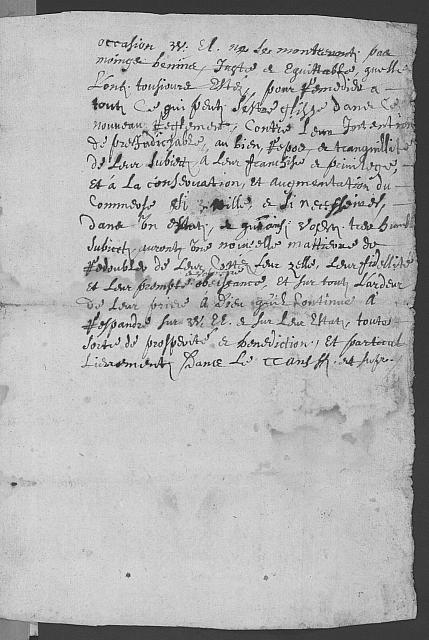 occasion V. EE. ne se monstreront pas
moings benins, Juste & Equittable, quelle
Lont tousioure Esté, pour Remedier a
tout ce qui peut sestre glissé dans ce
nouveau Reglement, Contre leur Intention
de prejudiciable, au bien, Repos, & tranquillité
de leur subiect, a leur franchise & privilege,
et á la conservation, et augmentation du
Commerse si utille, & si necessaire,
dans un Estat, & quainsi vos tres humbles
subiect, auront une nouvelle mattiere de
Redoubler de leur Costé, leur zelle, leur fidellité
et leur prompte obeissance, et sur tout Lardeur
de leur priere a Dieu quil continue a
Respandre sur V. EE. & sur leur Estat, toute
sorte de prosperité & benediction, et particul
lierement dans le